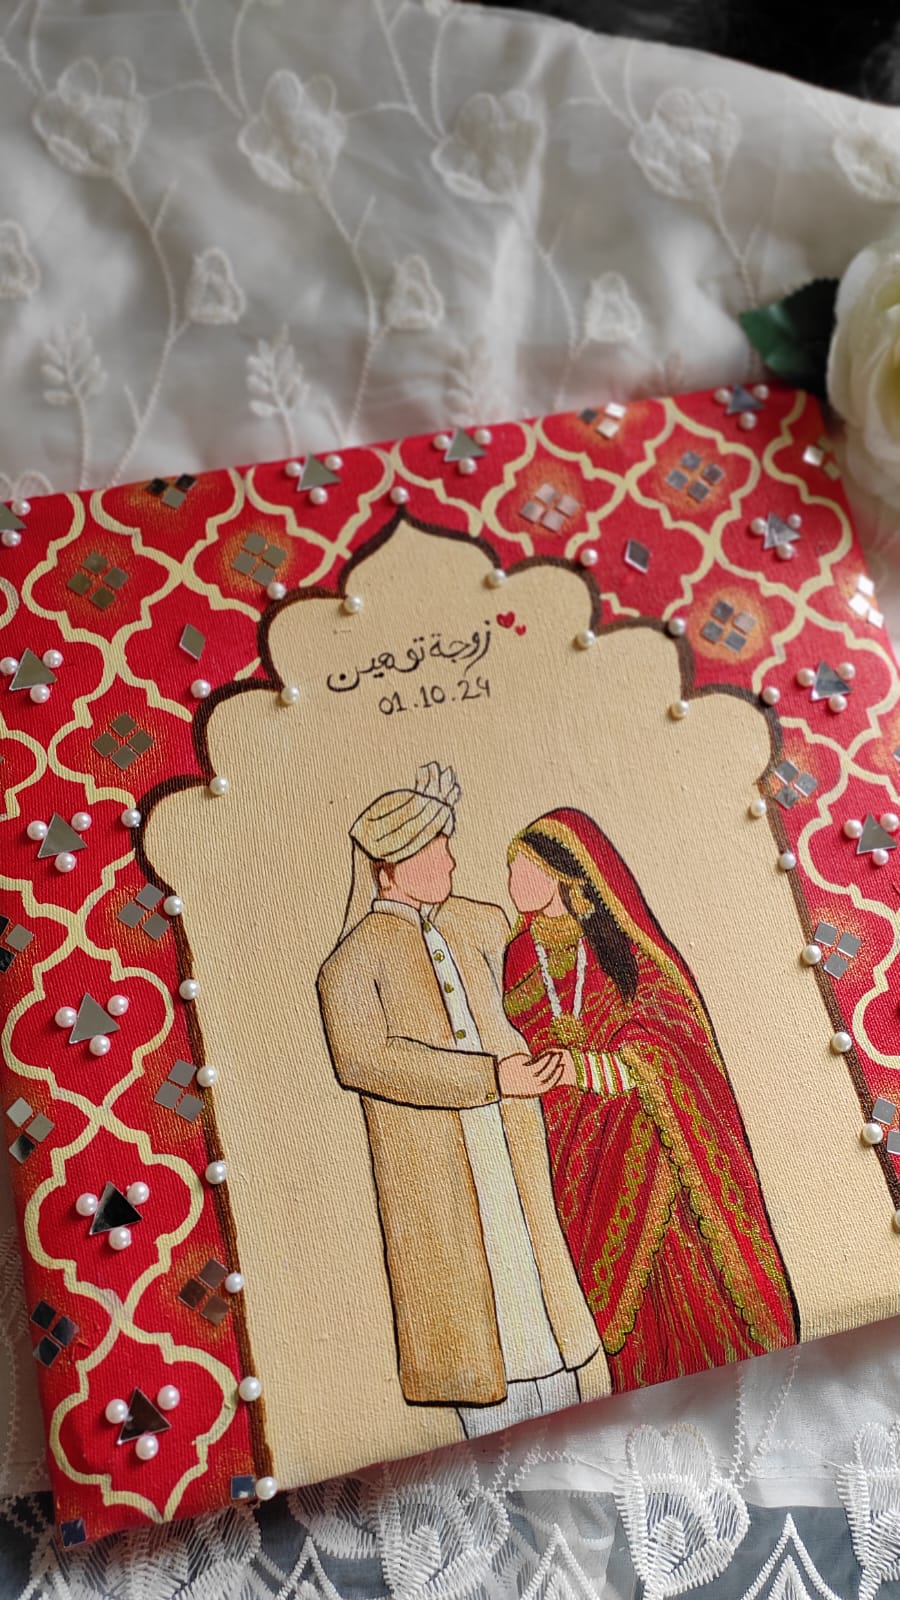 زوجة توهين
01.10.24